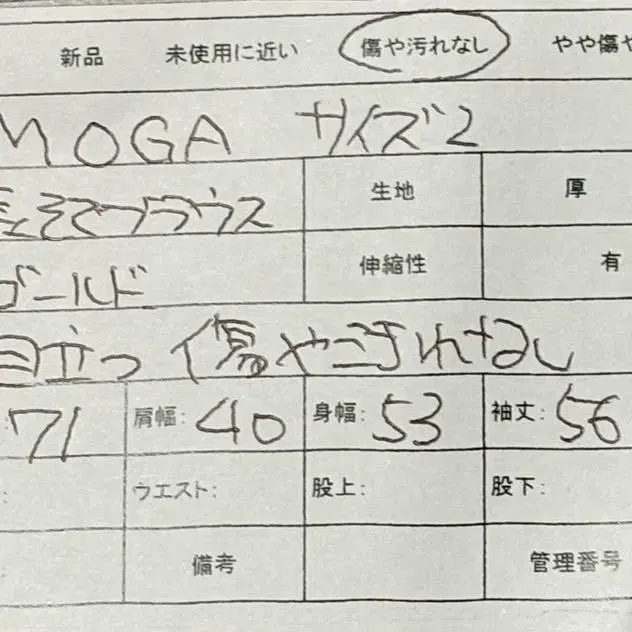 新品 未使用に近い 傷や汚れなし やや傷や
MOGA サイズ2
長そでブラウス 生地 厚
ゴールド 伸縮性 有
目立つ傷やよごれなし
: 71 肩幅: 40 身幅: 53 袖丈: 56
: ウエスト: 股上: 股下:
備考 管理番号